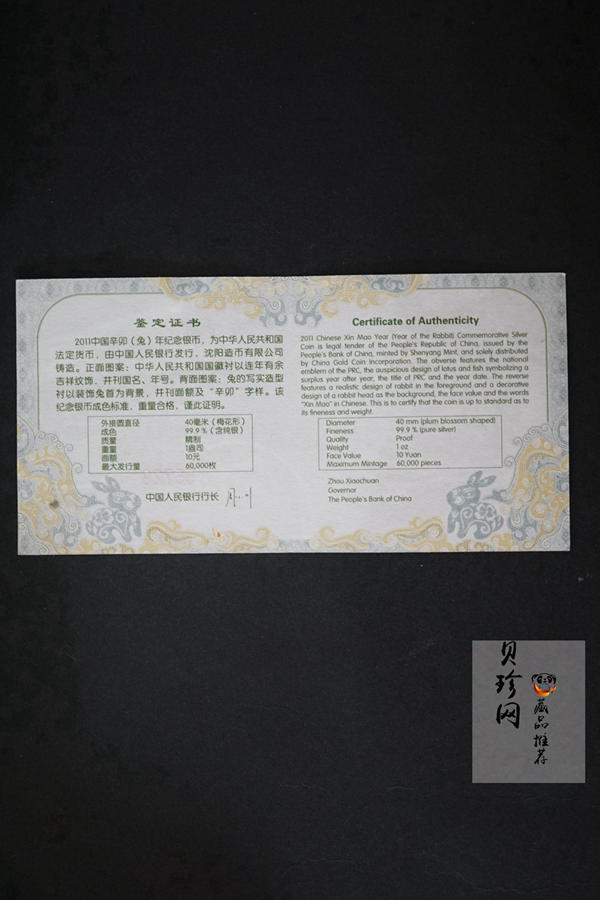 鉴定证书
2011中国辛卯（兔）年纪念银币，为中华人民共和国
法定货币，由中国人民银行发行，沈阳造币有限公司
铸造。正面图案：中华人民共和国国徽衬以连年有余
吉祥纹饰，并刊国名、年号。背面图案：兔的写实造型
衬以装饰兔首为背景，并刊面额及“辛卯”字样。该
纪念银币成色标准，重量合格，谨此证明。
外接圆直径 40毫米（梅花形）
成色 99.9％（含纯银）
质量 精制
重量 1盎司
面额 10元
最大发行量 60,000枚
中国人民银行行长
Certificate of Authenticity
2011 Chinese Xin Mao Year (Year of the Rabbit) Commemorative Silver
Coin is legal tender of the People's Republic of China, issued by the
People's Bank of China, minted by Shenyang Mint, and solely distributed
by China Gold Coin Incorporation. The obverse features the national
emblem of the PRC, the auspicious design of lotus and fish symbolizing a
surplus year after year, the title of PRC and the year date. The reverse
features a realistic design of rabbit in the foreground and a decorative
design of a rabbit head as the background, the face value and the words
"Xin Mao" in Chinese. This is to certify that the coin is up to standard as to
its fineness and weight.
Diameter 40 mm (plum blossom shaped)
Fineness 99.9 % (pure silver)
Quality Proof
Weight 1 oz
Face Value 10 Yuan
Maximum Mintage 60,000 pieces
Zhou Xiaochuan
Governor
The People's Bank of China
贝珍网
藏品推荐